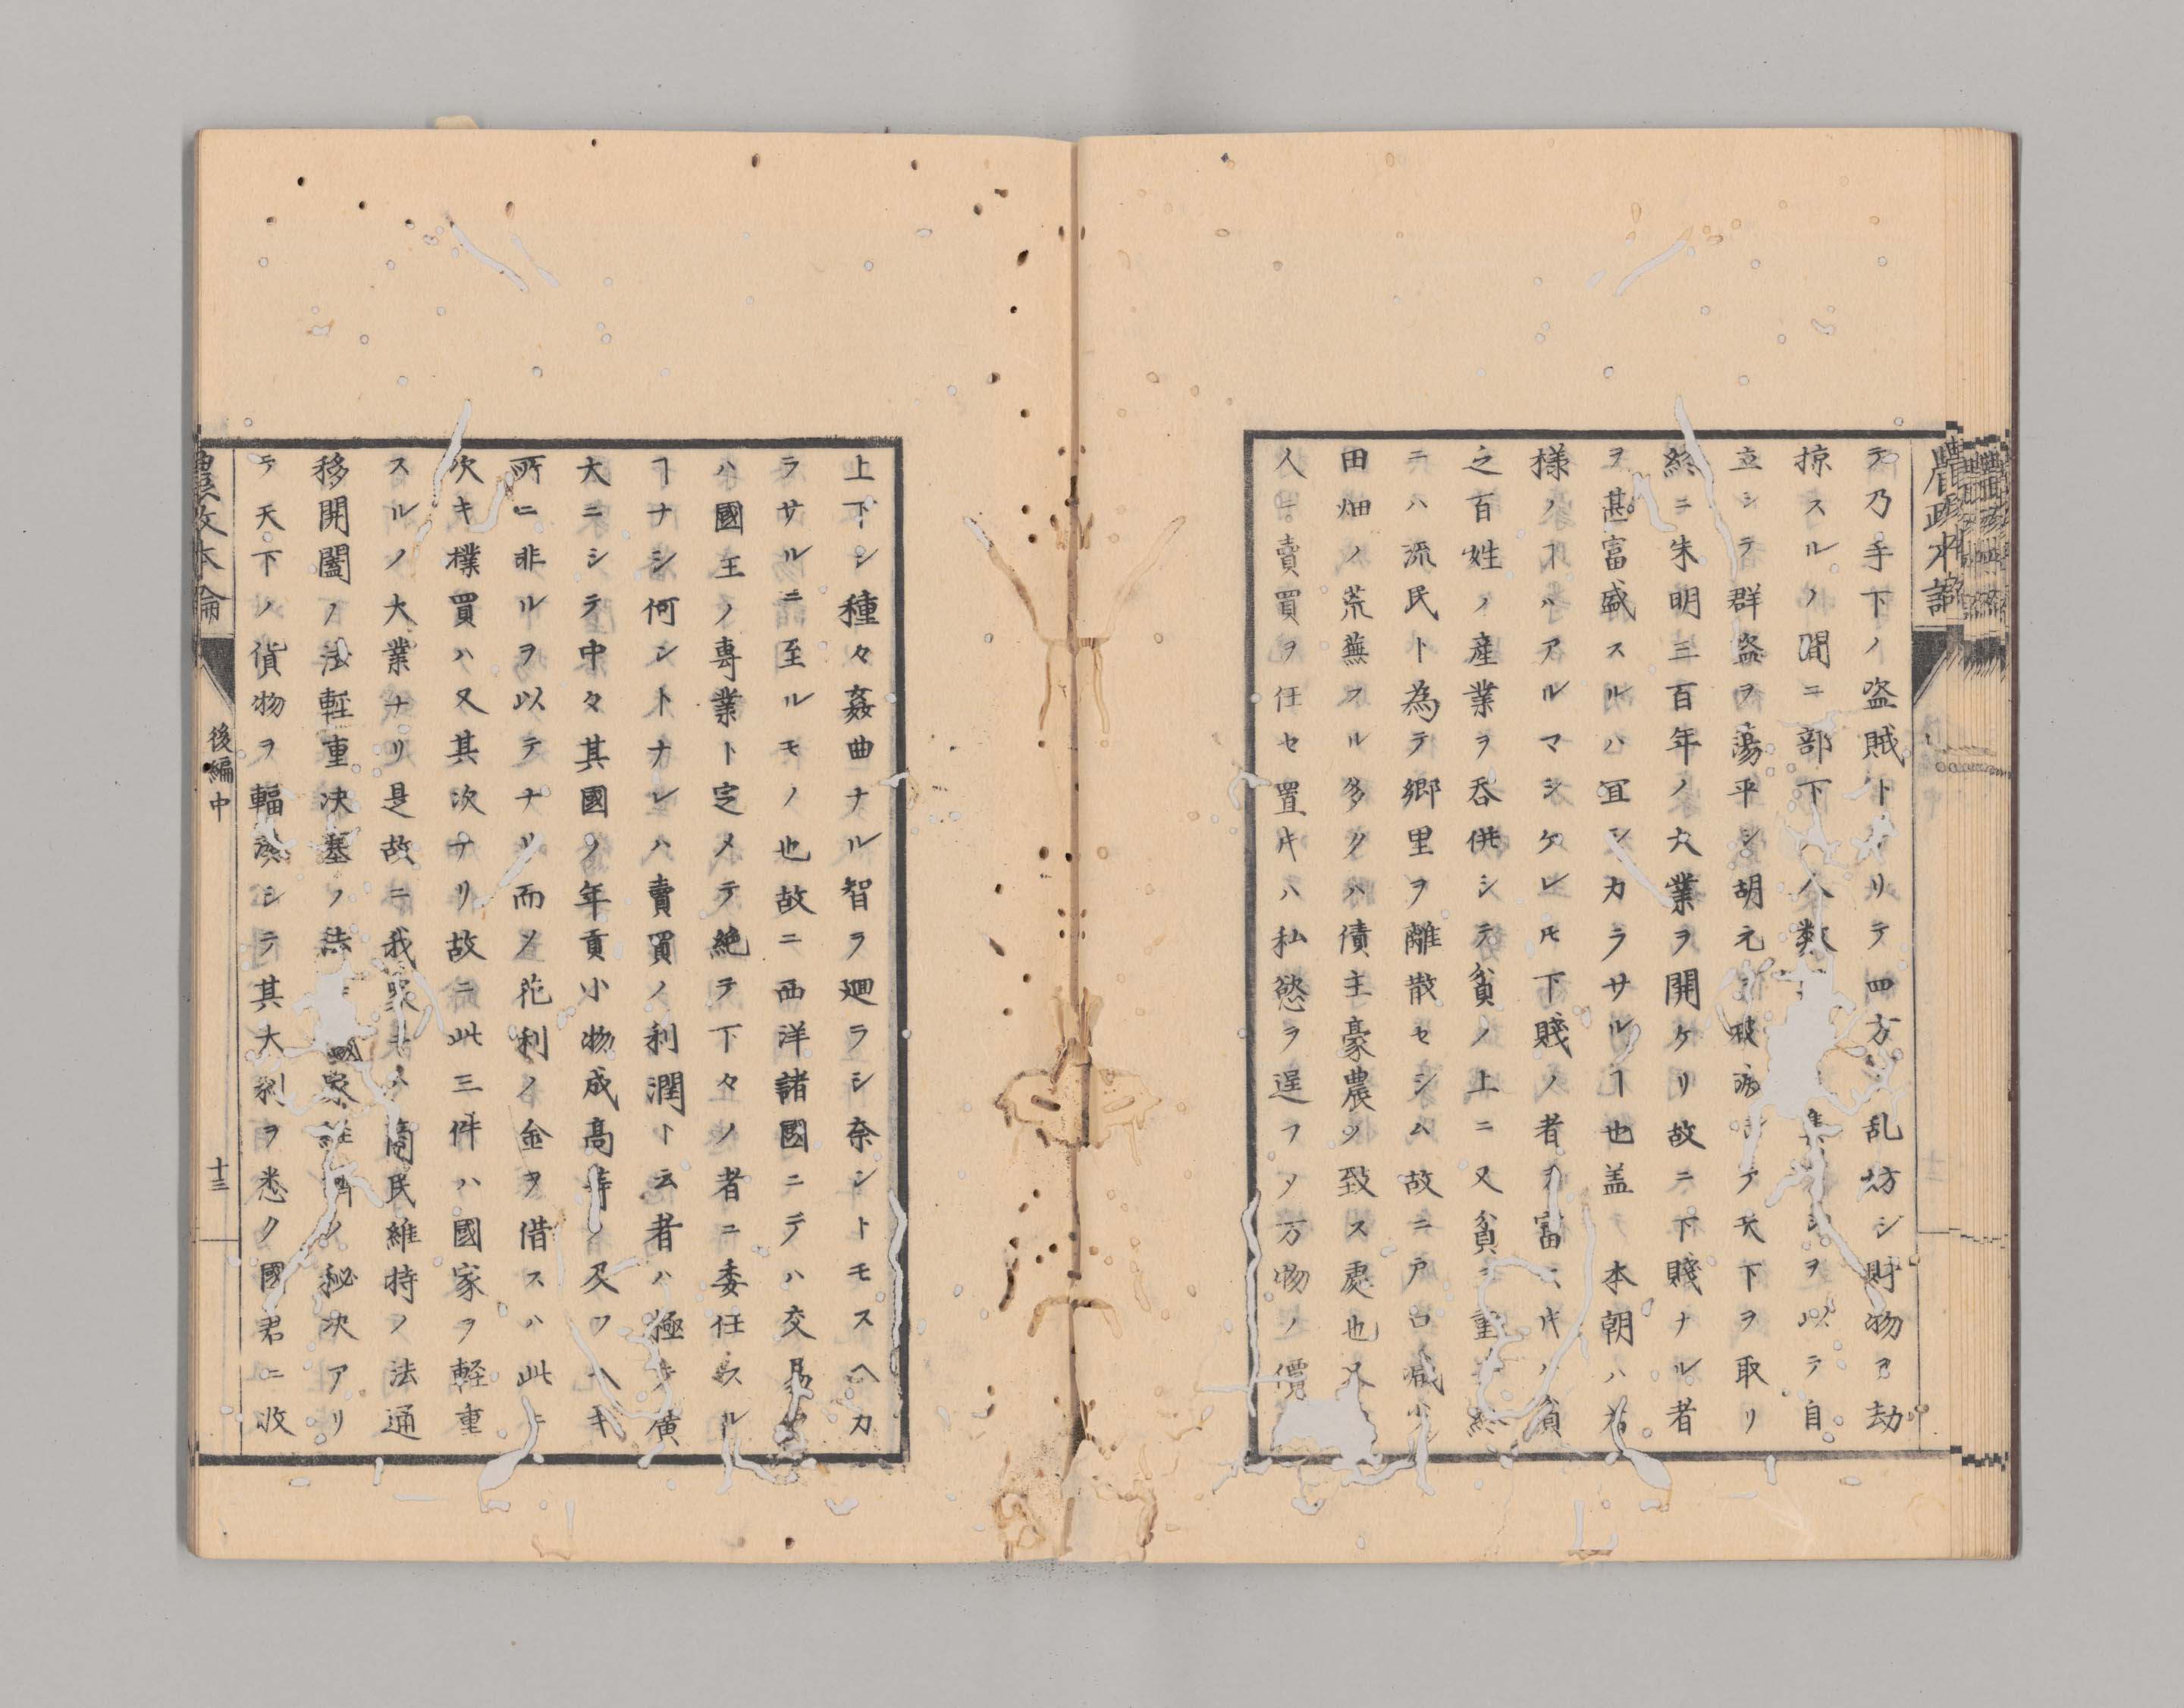 テ乃手下ノ盗賊トナリテ四方ヲ乱坊シ財物ヲ劫
掠スルノ間ニ部下ノ人数ヲ以テ自
立シテ群盗ヲ蕩平シ胡元ヲ破滅シテ天下ヲ取リ
終ニ朱明三百年ノ大業ヲ開ケリ故ニ下賤ナル者
ヲ甚富盛スルハ宜シカラサルヿ也盖本朝ハ
様ノヿハアルマシケレ𪜈下賤ノ者ヲ富ハ貧
之百姓ノ産業ヲ呑併シテ貧ノ上ニ又貧ヲ重
ニハ流民ト為テ郷里ヲ離散セシム故ニ戸口減少
田畑ノ荒蕪スル多クハ債主豪農ノ致ス處也又
人ニ賣買ヲ任セ置キハ私慾ヲ逞フメ万物ノ價
上下シ種々姦曲ナル智ヲ廻ラシ奈ントモスヘカ
ラサルニ至ルモノ也故ニ西洋諸國ニテハ交易
ハ國主ノ專業ト定メテ絶テ下々ノ者ニ委任スル
ヿナシ何ントナレハ賣買ノ利潤ト云者ハ極テ廣
大ニシテ中々其國ノ年貢小物成高等ノ及フヘキ
所ニ非ルヲ以テナリ而メ花利ノ金ヲ借スハ此ニ
次キ撲買ハ又其次ナリ故ニ此三件ハ國家ヲ軽重
スルノ大業ナリ是故ニ我家ニハ萬民維持ノ法通
移開闔ノ法軽重決塞ノ法國家ノ秘决アリ
テ天下ノ貨物ヲ輻湊シテ其大利ヲ悉ク國君ニ收
農政本論
後編中
十三